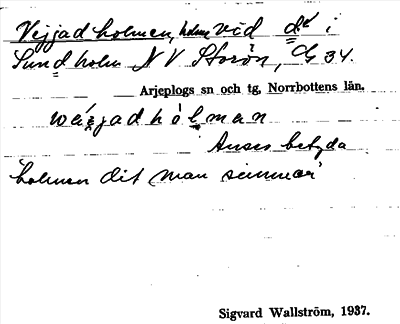 Vejjadholmen, holme vid d i
Sundholm NV Storön, G 34.
Arjeplogs sn och tg, Norrbottens län.
wäjjadhólman
Anses betyda
holmen dit man simmar
Sigvard Wallström, 1937.